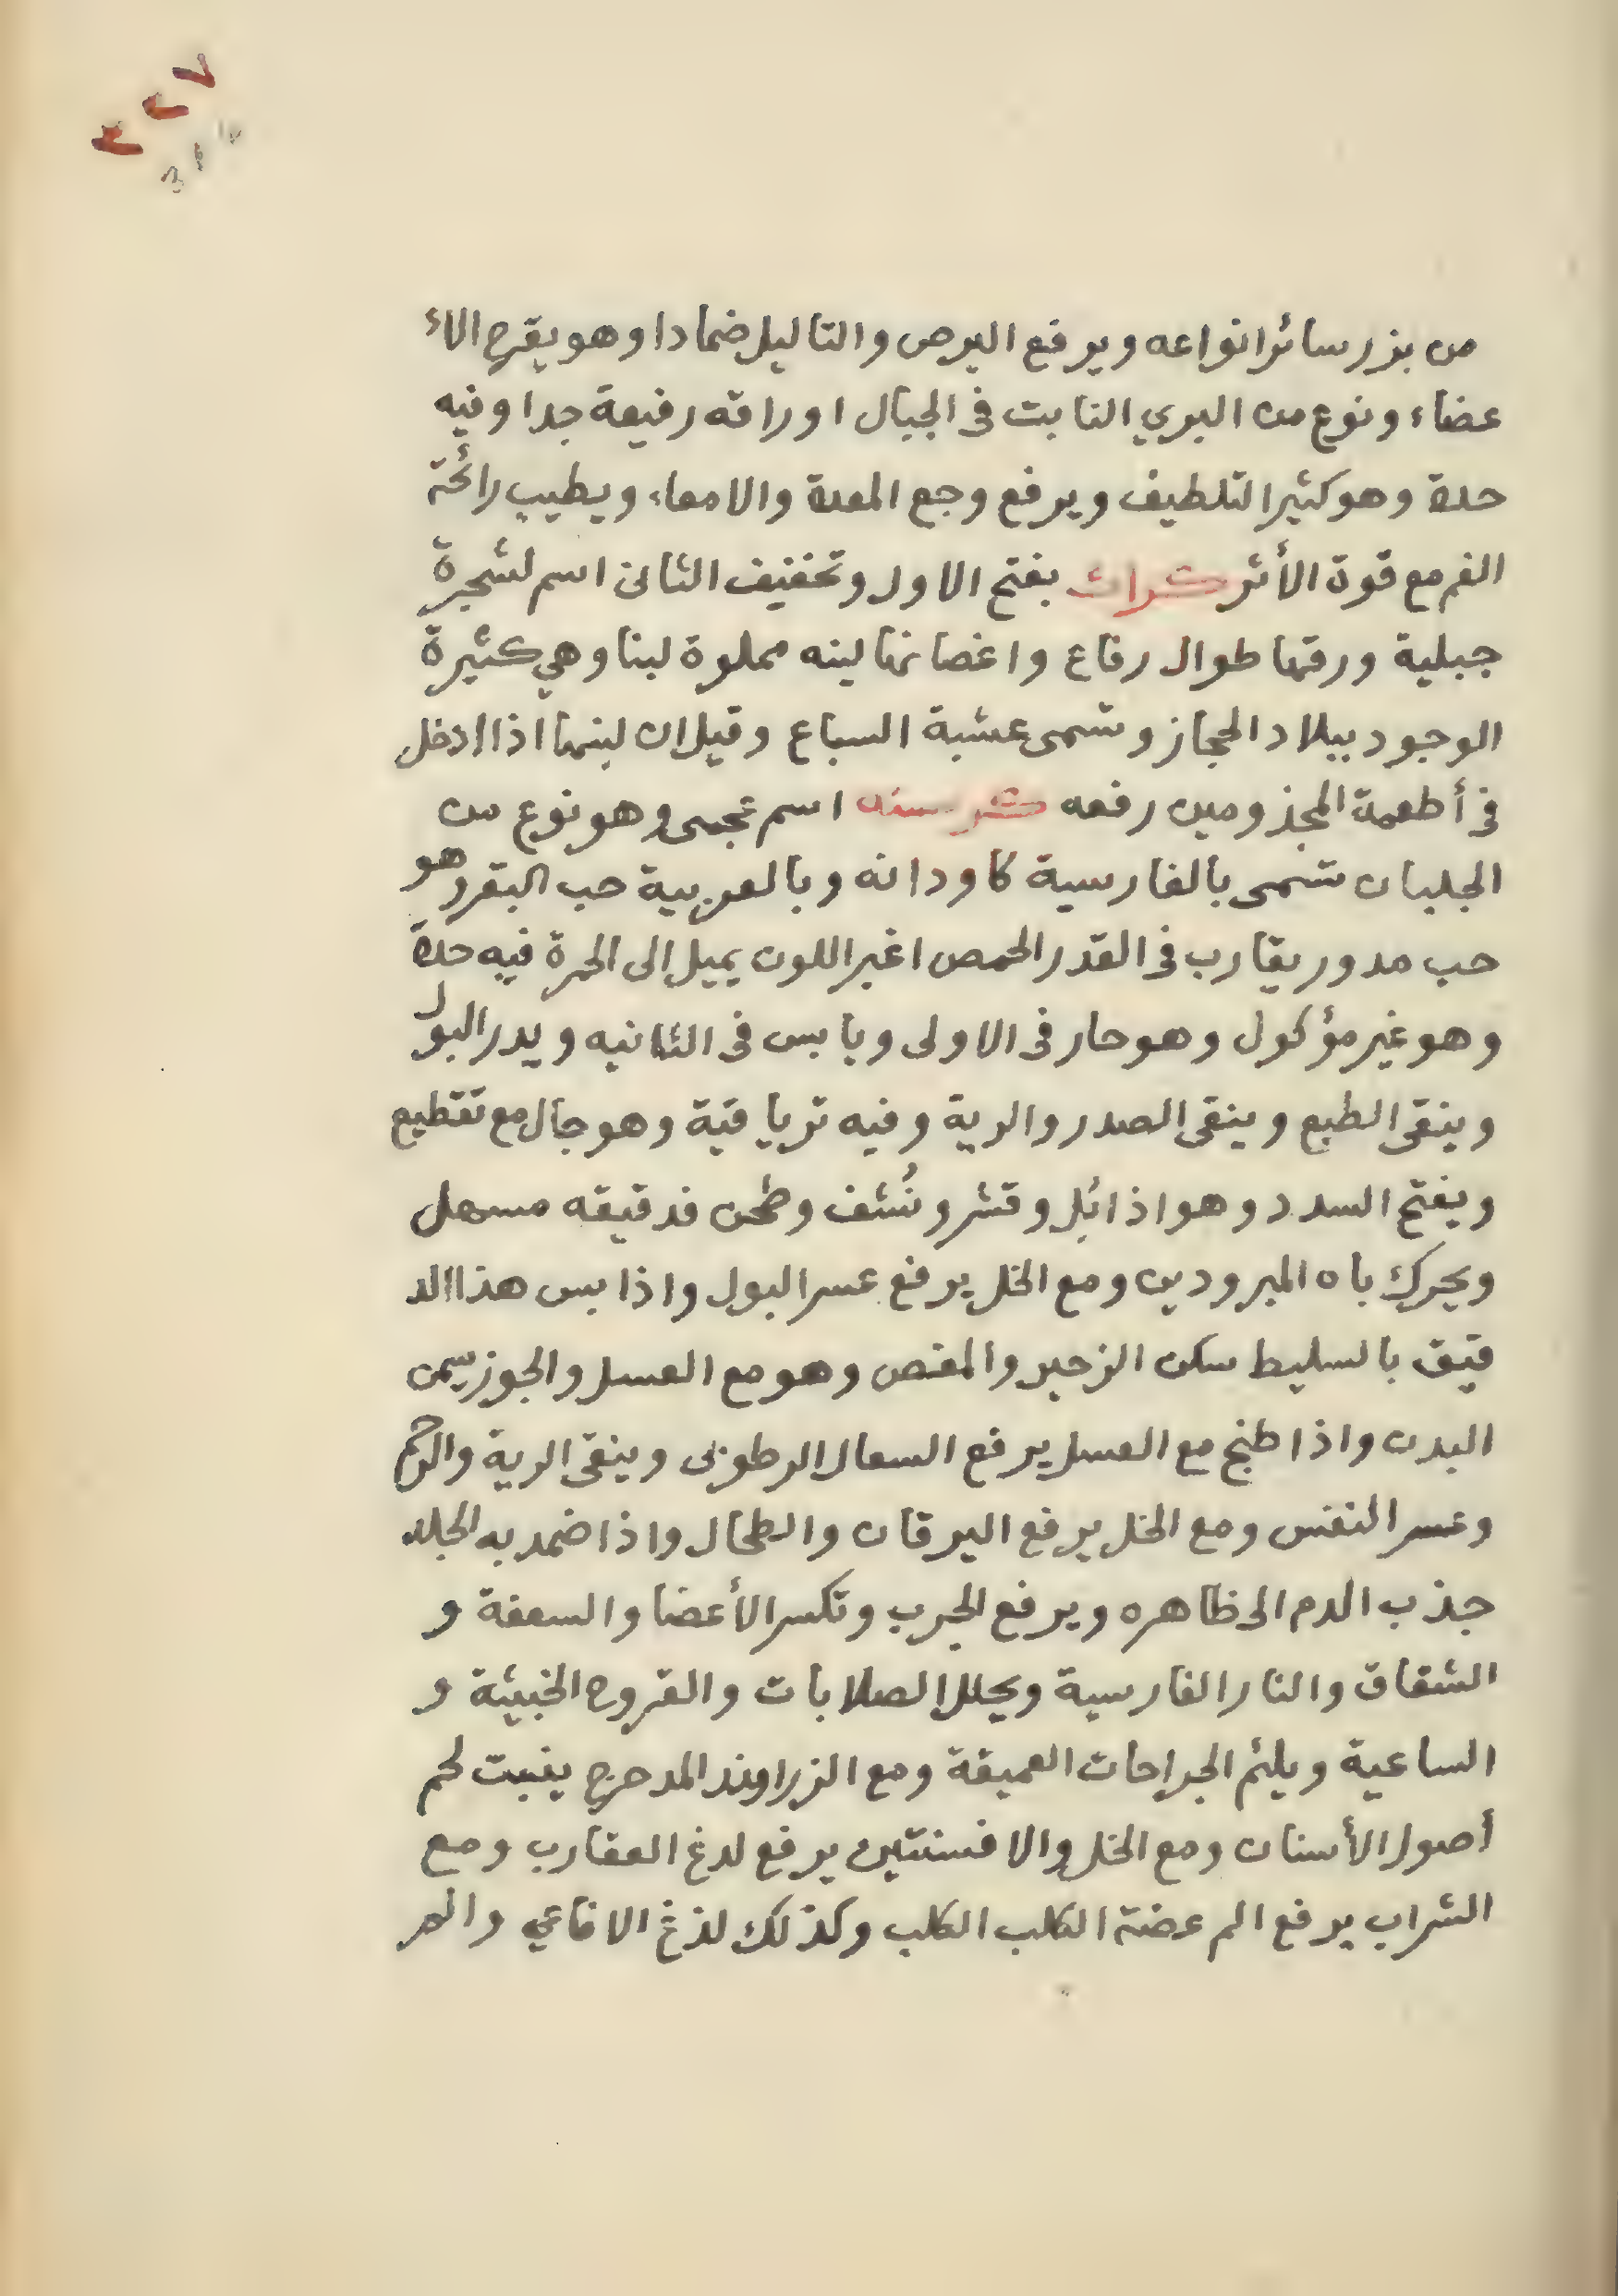 ٣٢٧
من بزر سائر انواعه ويرفع البرص والتاليل ضمادا وهو يقرح الاء
عضاء ونوع من البري النابت فى الجبال اوراقه رفيعة جدا وفيه
حدة وهو كثير التلطيف ويرفع وجع المعدة والامعاء ويطيب رائحة
الفم مع قوة الأثر كراث بفتح الاول وتخفيف الثانى اسم لشجرة
جبلية ورقها طوال رقاع واغصانها لينه مملوة لبنا وهي كثيرة
الوجود ببلاد الحجاز وتسمى عشبة السباع وقيل ان لبنها اذا ادخل
فى أطعمة المجذومين رفعه كرسنه اسم عجمى وهو نوع من
الجلبان تسمى بالفارسية كاودانه وبالعربية حب البقر وهو
حب مدور يقارب فى القدر الحمص اغبر اللون يميل الى الحمرة فيه حدة
وهو غير مؤكول وهو حار فى الاولى ويابس فى الثانيه ويدر البول
وينقى الطبع وينقى الصدر والرية وفيه ترياقية وهو جال مع تقطيع
ويفتح السدد وهو اذا بُل وقشر ونُشف وطحن فدقيقه مسهل
ويحرك باه المبرودين ومع الخل يرفع عسر البول واذا بس هذا الد
قيق بالسليط سكن الزحير والمغص وهو مع العسل والجوز يسمن
البدن واذا طبخ مع العسل يرفع السعال الرطوبى وينقى الرية والرحم
وعسر النفس ومع الخل يرفع اليرقان والطحال واذا ضمد به الجلد
جذب الدم الى ظاهره ويرفع الجرب وتكسر الأعضا والسعفة و
الشقاق والنار الفارسية ويحلل الصلابات والقروح الخبيثة و
الساعية ويلئم الجراحات العميقة ومع الزراوند المدحرج ينبت لحم
أصول الأسنان ومع الخل والافسنتين يرفع لدغ العقارب ومع
الشراب يرفع الم عضة الكلب الكلب وكذلك لذغ الافاعي والهر